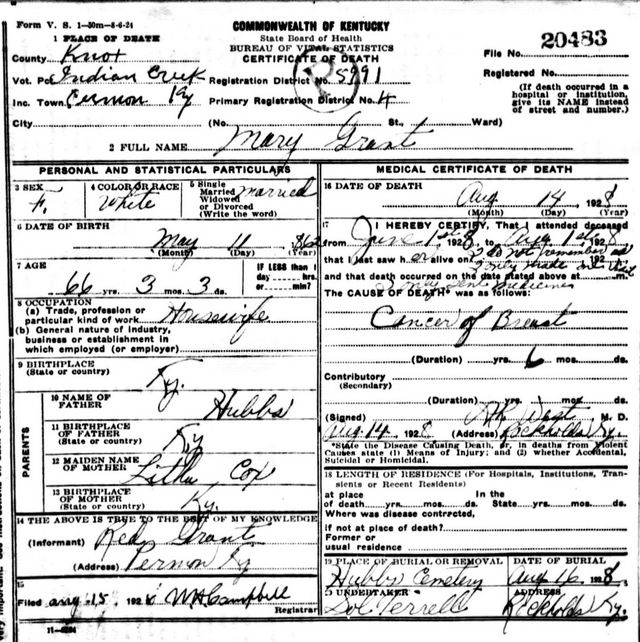 Form V. S. 1-50m-8-6-24
COMMONWEALTH OF KENTUCKY
State Board of Health
BUREAU OF VITAL STATISTICS
CERTIFICATE OF DEATH
1 PLACE OF DEATH
County Knox
File No. 20483
Vot. Pct Indian Creek
Registration District No. 5991
Registered No.
Inc. Town Permon Ky
Primary Registration District No. 4
(If death occurred in a hospital or institution, give its NAME instead of street and number.)
City (No. St., Ward)
2 FULL NAME Mary Grant
PERSONAL AND STATISTICAL PARTICULARS
3 SEX F.
4 COLOR OR RACE White
5 Single Married Widowed or Divorced (Write the word) married
6 DATE OF BIRTH
May 11 1862
7 AGE
66 yrs. 3 mos. 3 ds.
IF LESS than 1 day hrs. or min.?
8 OCCUPATION
(a) Trade, profession or particular kind of work Housewife
(b) General nature of industry, business or establishment in which employed (or employer)
9 BIRTHPLACE
(State or country) Ky.
PARENTS
10 NAME OF FATHER Hubbs
11 BIRTHPLACE OF FATHER (State or country) Ky
12 MAIDEN NAME OF MOTHER Cox
13 BIRTHPLACE OF MOTHER (State or country) Ky.
14 THE ABOVE IS TRUE TO THE BEST OF MY KNOWLEDGE
(Informant) Grant
(Address) Permon Ky
15
Filed Aug 15 1928 Campbell
Registrar
11-6224
MEDICAL CERTIFICATE OF DEATH
16 DATE OF DEATH
Aug 14 1928
(Month) (Day) (Year)
17 I HEREBY CERTIFY, That I attended deceased
from June 1st 1928, to Aug 1st 1928
that I last saw her alive on I do not remember as
I only made one visit
and that death occurred on the date stated above at m.
I sent medicines
The CAUSE OF DEATH* was as follows:
Cancer of Breast
(Duration) yrs. 6 mos. ds.
Contributory
(Secondary)
(Duration) yrs. mos. ds.
(Signed) M. D.
Aug 14, 1928 (Address) Rockholds Ky.
*State the Disease Causing Death, or, in deaths from Violent Causes state (1) Means of Injury; and (2) whether Accidental, Suicidal or Homicidal.
18 LENGTH OF RESIDENCE (For Hospitals, Institutions, Transients or Recent Residents)
at place of death yrs. mos. ds. In the State yrs. mos. ds.
Where was disease contracted,
if not at place of death?
Former or
usual residence
19 PLACE OF BURIAL OR REMOVAL
Hubbs Cemetery
DATE OF BURIAL
Aug 16 1928
20 UNDERTAKER
Sol Terrell
ADDRESS
Rockholds Ky.